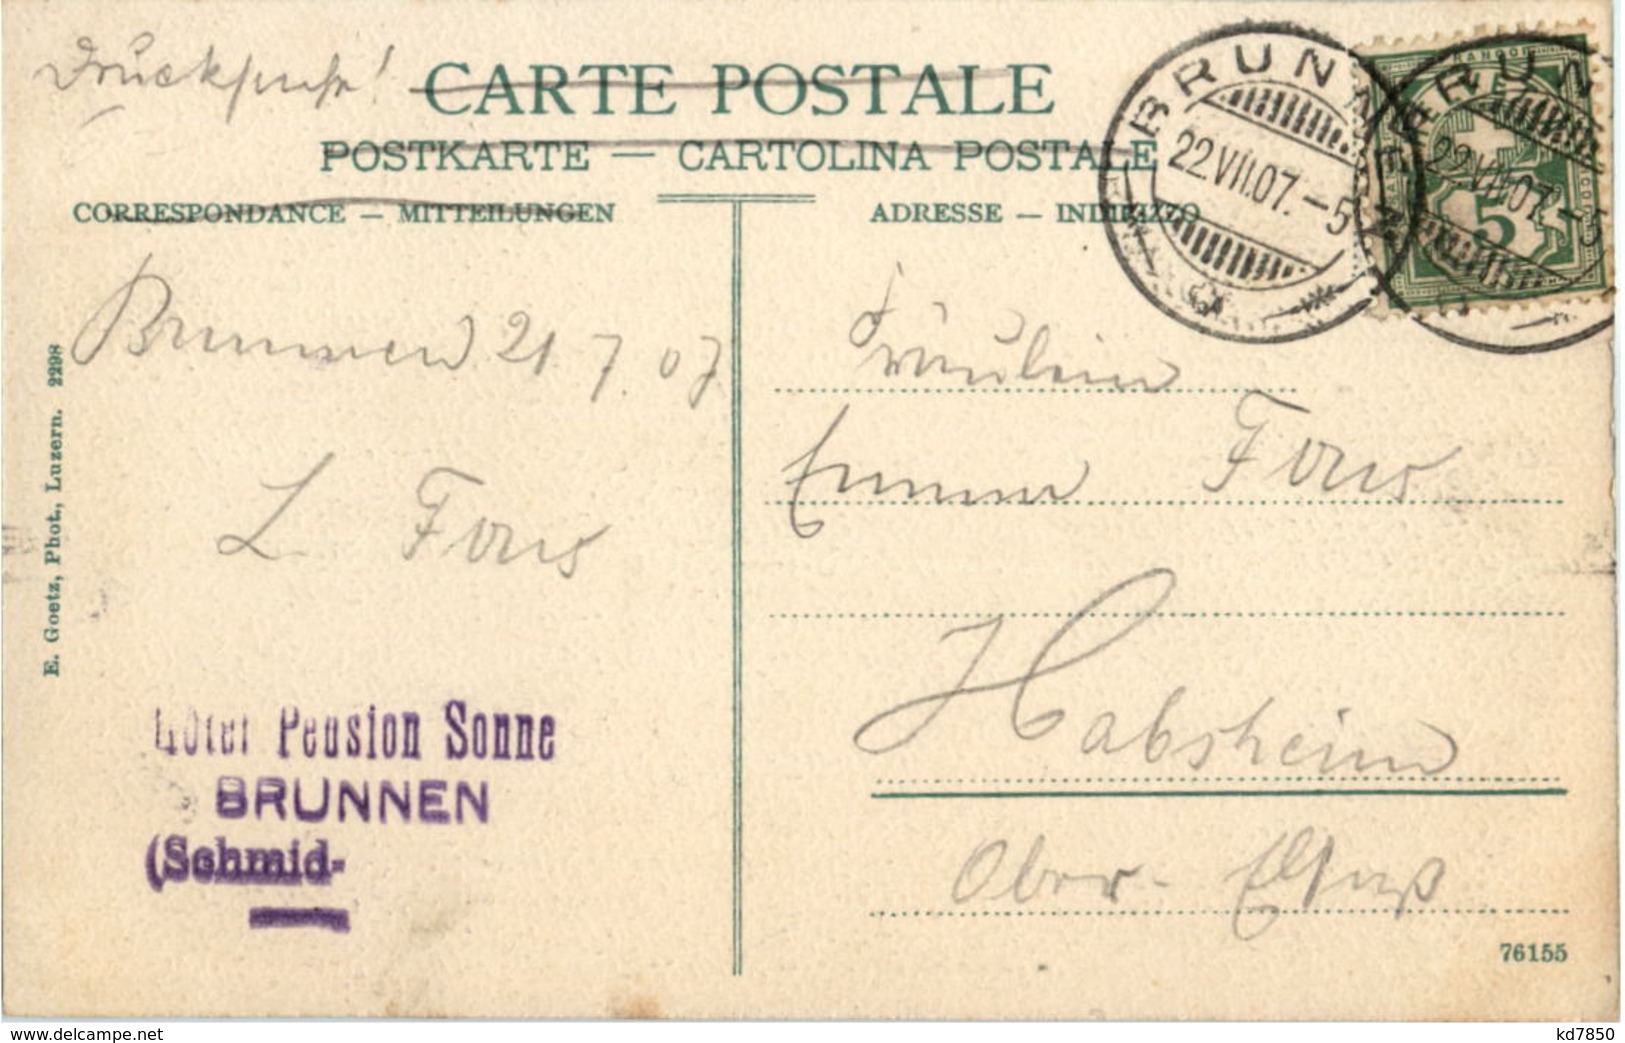 Drucksache!
CARTE POSTALE
POSTKARTE — CARTOLINA POSTALE
CORRESPONDANCE — MITTEILUNGEN
ADRESSE — INDIRIZZO
BRUNNEN
22.VII.07.-5
BRUNNEN
22.VII.07.-5
5
Brunnen 21.7.07
L.
Fräulein
Emma
Habsheim
Ober-Elsaß
Hôtel Pension Sonne
BRUNNEN
(Schmid-
E. Goetz, Phot., Luzern. 2298
76155
www.delcampe.net
kd7850